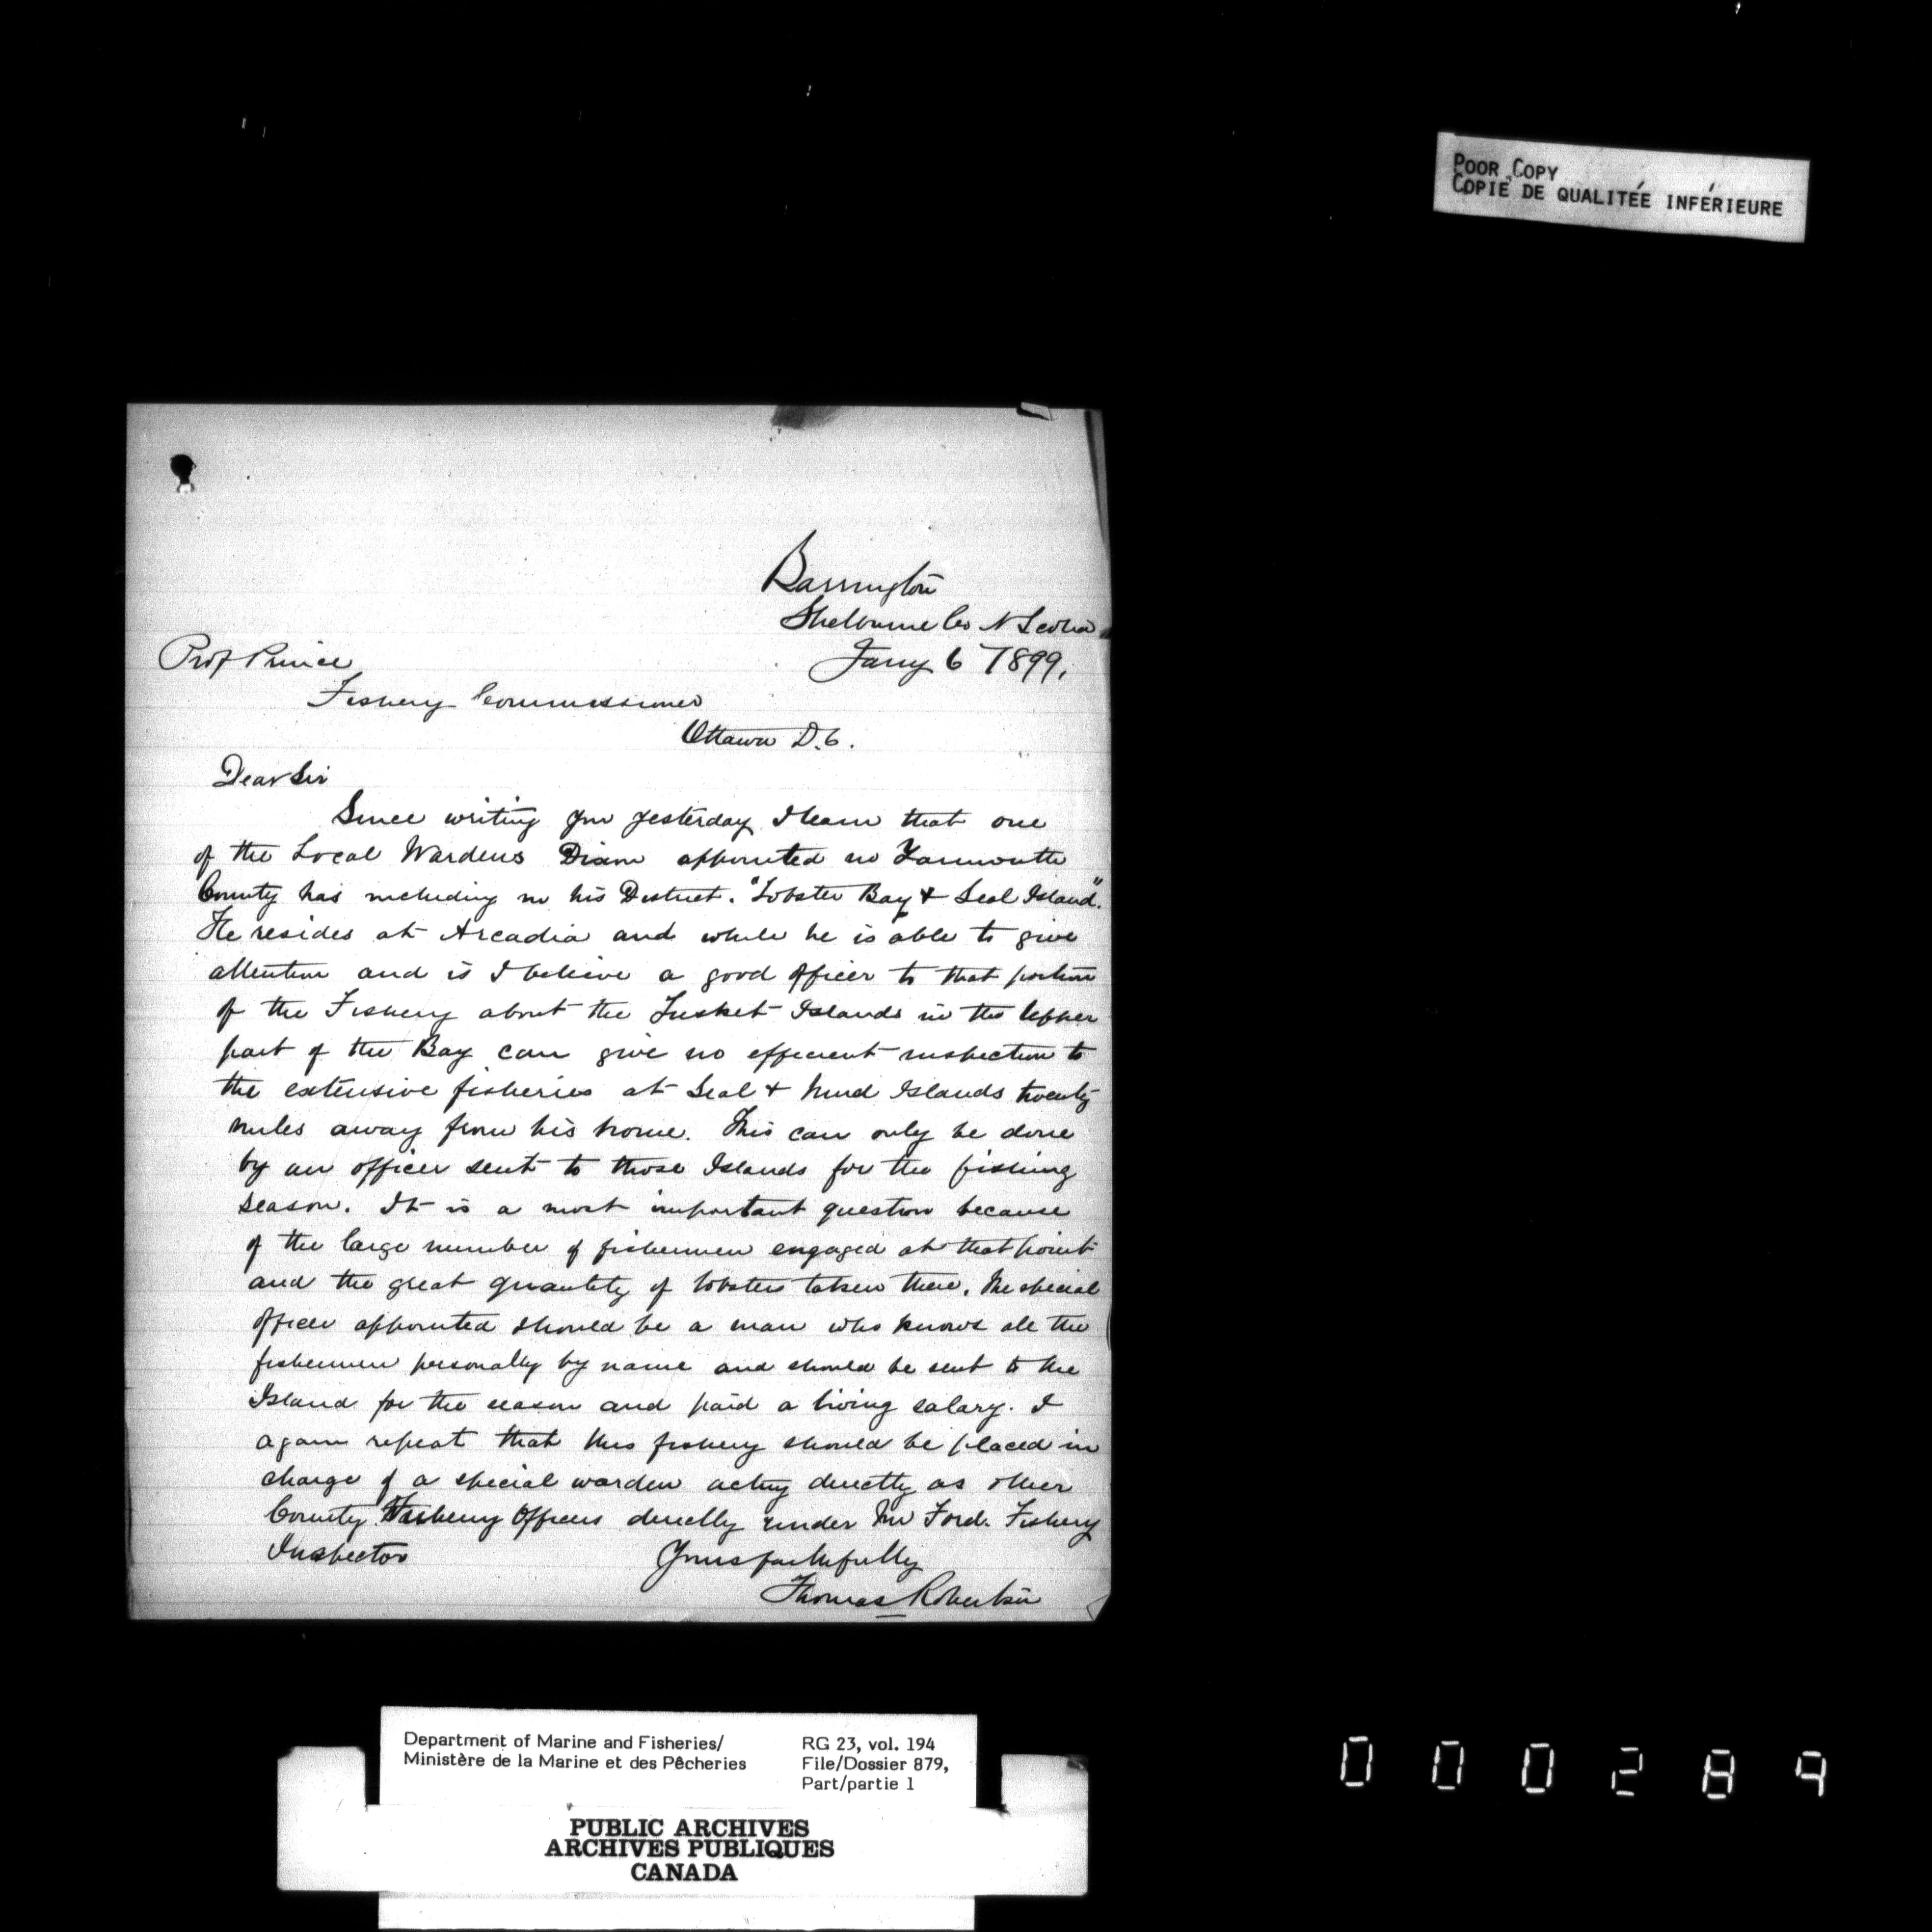 POOR COPY
COPIE DE QUALITÉE INFÉRIEURE
Barrington
Shelburne Co N Scotia
Jany 6 1899.
Prof Prince
Fishery Commissioner
Ottawa D.C.
Dear Sir
Since writing you yesterday I learn that one
of the Local Wardens appointed in Yarmouth
County has including in his District. "Lobster Bay & Seal Island".
He resides at Arcadia and while he is able to give
attention and is I believe a good officer to that portion
of the Fishery about the Tusket Islands in the Upper
part of the Bay can give no efficient inspection to
the extensive fisheries at Seal & Mud Islands twenty
miles away from his home. This can only be done
by an officer sent to those Islands for the fishing
season. It is a most important question because
of the large number of fishermen engaged at that point
and the great quantity of lobsters taken there. The special
officer appointed should be a man who knows all the
fishermen personally by name and should be sent to the
Island for the season and paid a living salary. I
again repeat that this fishery should be placed in
charge of a special warden acting directly as other
County Fishery Officers directly under Mr Ford. Fishery
Inspector
Yours faithfully
Thomas Robertson
Department of Marine and Fisheries/
Ministère de la Marine et des Pêcheries
RG 23, vol. 194
File/Dossier 879,
Part/partie 1
PUBLIC ARCHIVES
ARCHIVES PUBLIQUES
CANADA
000289